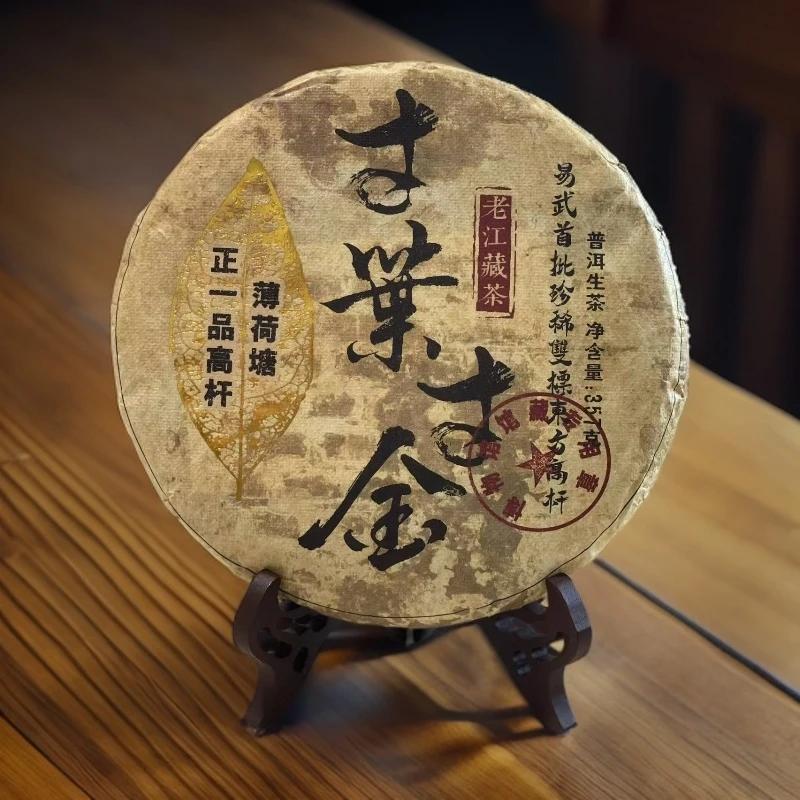 普洱生茶 净含量:357克
易武首批珍稀雙標東方高杆
老江藏茶
寸葉
寸金
薄荷塘
正一品高杆